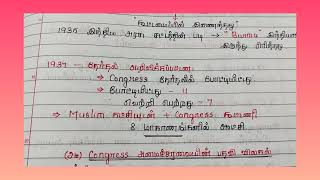 "கூட்டமைப்பில் இணைந்தது"
1935 இந்திய அரசு சட்டத்தின் படி → "Burma" இந்தியா
இருந்து பிரிந்தது
1937 - தேர்தல் அறிவிக்கப்பட்டது
⇒ Congress தேர்தலில் போட்டியிட்டது
⇒ போட்டியிட்டது - 11
வெற்றி பெற்றது - 7
⇒ Muslim + Congress கூட்டணி
8 மாகாணங்களில் ஆட்சி
(24) Congress அமைச்சரவையின் பதவி விலகல்